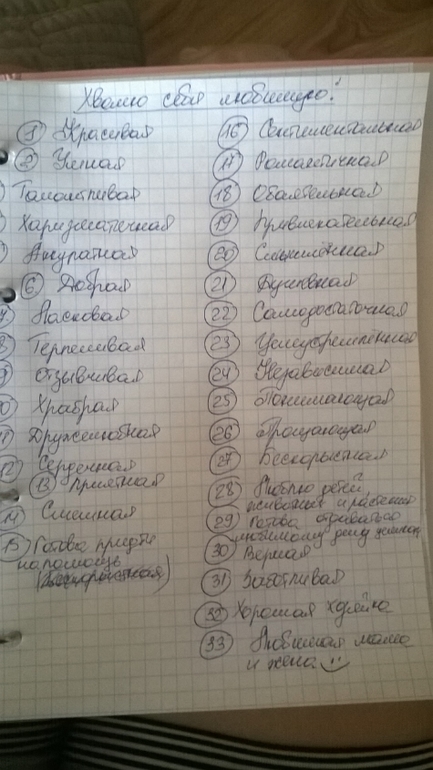 Хвалю себя любимую!
1 Красивая
2 Умная
Талантливая
Харизматичная
Аккуратная
6 Добрая
7 Ласковая
8 Терпеливая
9 Отзывчивая
10 Храбрая
11 Дружелюбная
12 Сердечная
13 Приятная
14 Смешная
15 Готова придти
на помощь
(Бескорыстная)
16 Сентиментальная
17 Романтичная
18 Обаятельная
19 Привлекательная
20 Смышлённая
21 Душевная
22 Самодостаточная
23 Целеустремлённая
24 Независимая
25 Понимающая
26 Прощающая
27 Бескорыстная
28 Люблю детей,
животных и растения
29 Готова отдаваться
любимому делу
30 Верная
31 Заботливая
32 Хорошая хозяйка
33 Любимая мама
и жена